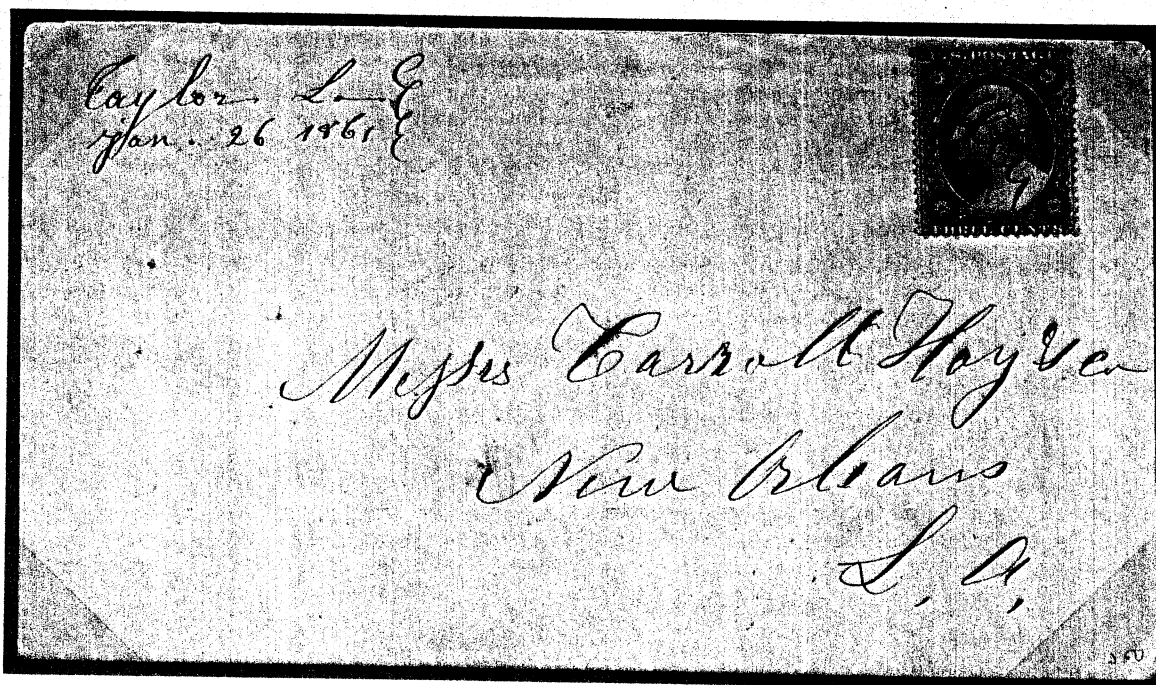 Taylor La
Jan. 26 1861
U.S. POSTAGE
THREE CENTS
Messrs Carroll Hoy & Co
New Orleans
L, A,